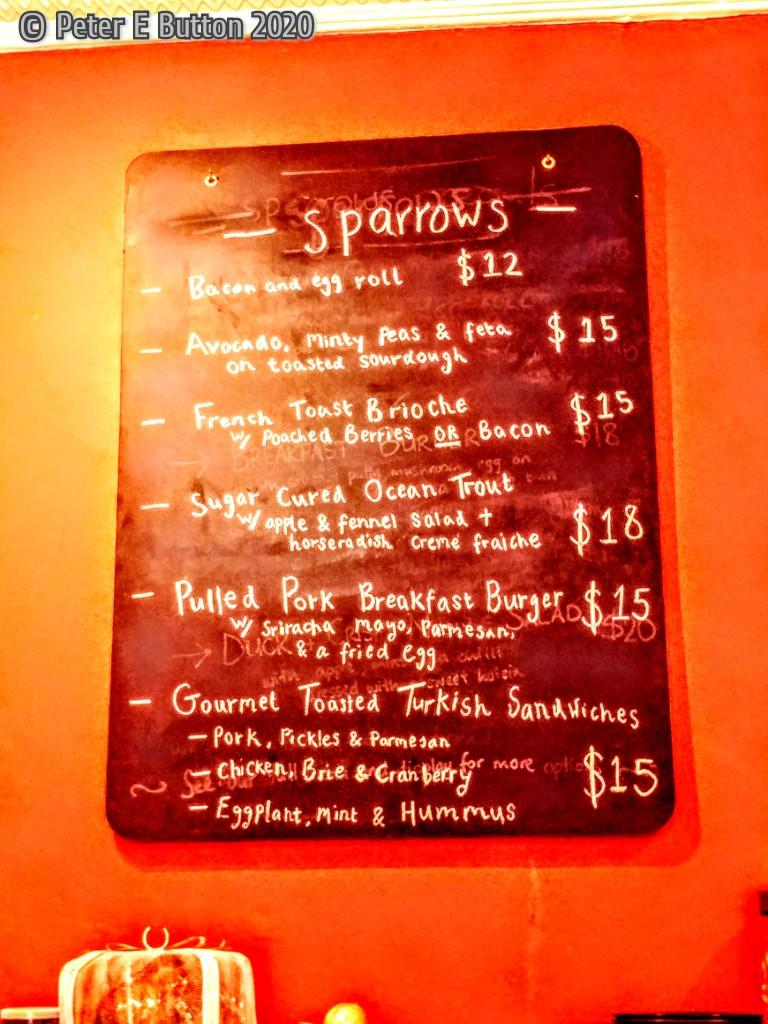 © Peter E Button 2020
Sparrows
- Bacon and egg roll $12
- Avocado, minty peas & feta $15
on toasted sourdough
- French Toast Brioche $15
w/ Poached Berries OR Bacon
$18
BREAKFAST BURGER
- Sugar Cured Ocean Trout
w/ apple & fennel salad +
horseradish creme fraiche $18
- Pulled Pork Breakfast Burger $15
w/ Sriracha mayo, Parmesan,
$20
DUCK SALAD
& a fried egg
- Gourmet Toasted Turkish Sandwiches
- Pork, Pickles & Parmesan
- Chicken, Brie & Cranberry $15
See our display for more
- Eggplant, Mint & Hummus